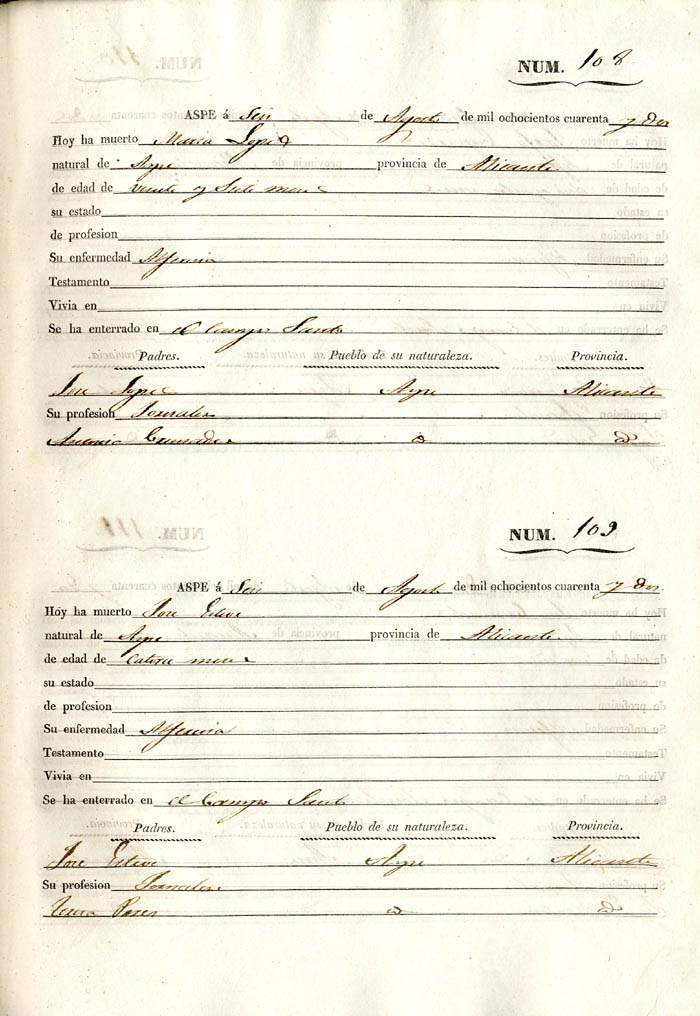 NUM. 108
ASPE á Seis de Agosto de mil ochocientos cuarenta y Dos
Hoy ha muerto Maria Lopez
natural de Aspe provincia de Alicante
de edad de veinte y Siete meses
su estado
de profesion
Su enfermedad Alferecia
Testamento
Vivia en
Se ha enterrado en el Campo Santo
Padres. Pueblo de su naturaleza. Provincia.
Jose Lopez Aspe Alicante
Su profesion Jornalero
Antonia
NUM. 109
ASPE á Seis de Agosto de mil ochocientos cuarenta y Dos
Hoy ha muerto Jose Esteve
natural de Aspe provincia de Alicante
de edad de Catorce meses
su estado
de profesion
Su enfermedad Alferecia
Testamento
Vivia en
Se ha enterrado en el Campo Santo
Padres. Pueblo de su naturaleza. Provincia.
Jose Esteve Aspe Alicante
Su profesion Jornalero
Teresa